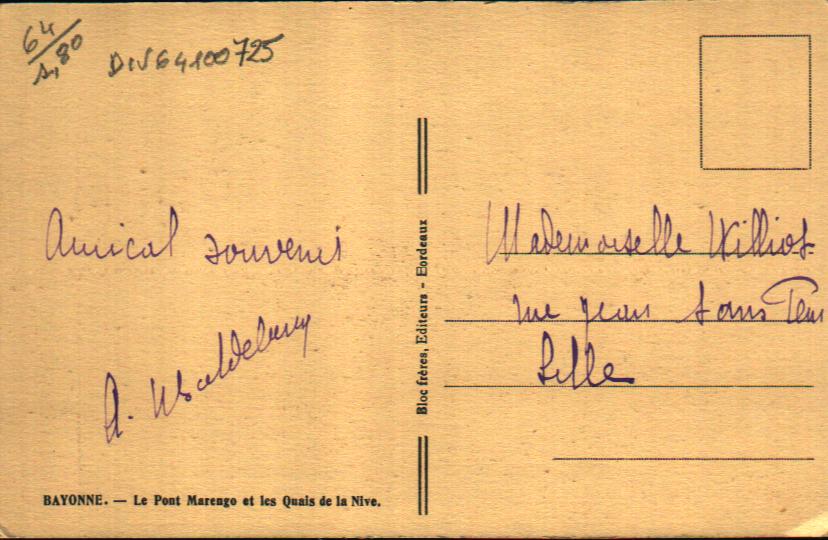 64
1,80
DIV64100725
Amical souvenir
A.
Mademoiselle Williot
rue Jean Sans Peur
Lille
Bloc frères, Editeurs - Bordeaux
BAYONNE. — Le Pont Marengo et les Quais de la Nive.